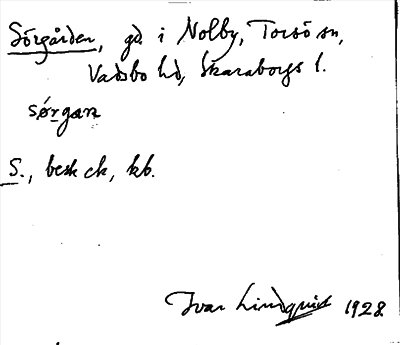 Sörgården, gd i Nolby, Torsö sn,
Vadsbo hd, Skaraborgs l.
sǿrgaɳ
S., besk ck, kb.
Ivar Lindquist 1928